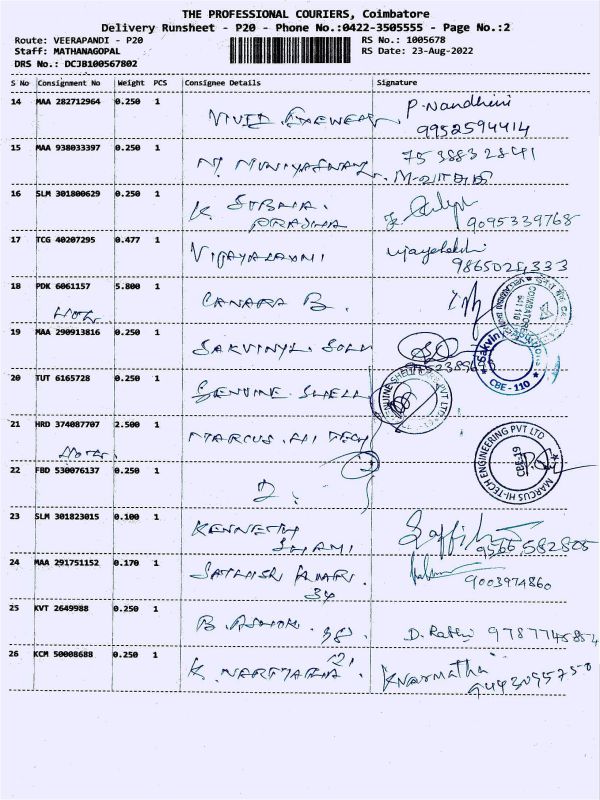 THE PROFESSIONAL COURIERS, Coimbatore
Delivery Runsheet - P20 - Phone No.:0422-3505555 - Page No.:2
Route: VEERAPANDI - P20 RS No.: 1005678
Staff: MATHANAGOPAL RS Date: 23-Aug-2022
DRS No.: DCJB100567802
S No Consignment No Weight PCS Consignee Details Signature
14 MAA 282712964 0.250 1 P. Nandhini
9952594414
15 MAA 938033397 0.250 1 7538832841
16 SLM 301800629 0.250 1 K
9095339768
17 TCG 40207295 0.477 1 VIJAYALAXMI
18 PDK 6061157 5.800 1 CANARA B.
19 MAA 290913816 0.250 1
Sakvin
CBE - 110
20 TUT 6165728 0.250 1 GENUINE SHELL
PVT LTD
21 HRD 374087707 2.500 1 MARCUS HI TECH
MARCUS HI-TECH ENGINEERING PVT LTD
CBE-19
22 FBD 530076137 0.250 1
23 SLM 301823015 0.100 1 KENNETH
SWAMI 9566582805
24 MAA 291751152 0.170 1
34 9003974860
25 KVT 2649988 0.250 1 B. ASHOK. 38. D. Rathi
26 KCM 50008688 0.250 1 K Narmatha